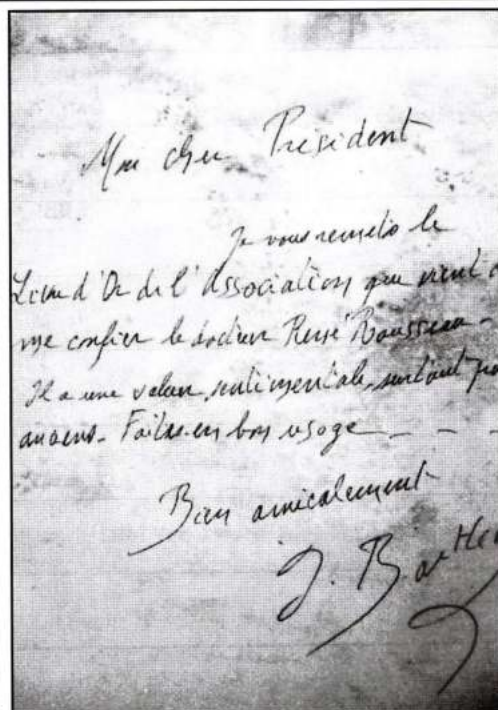 Mon cher Président
Je vous remets le
Livre d'Or de l'Association que vient d
me confier le docteur René Rousseau -
Il a une valeur sentimentale, surtout po
anciens - Faites-en bon usage _ _ _
Bien amicalement
J. Barthe